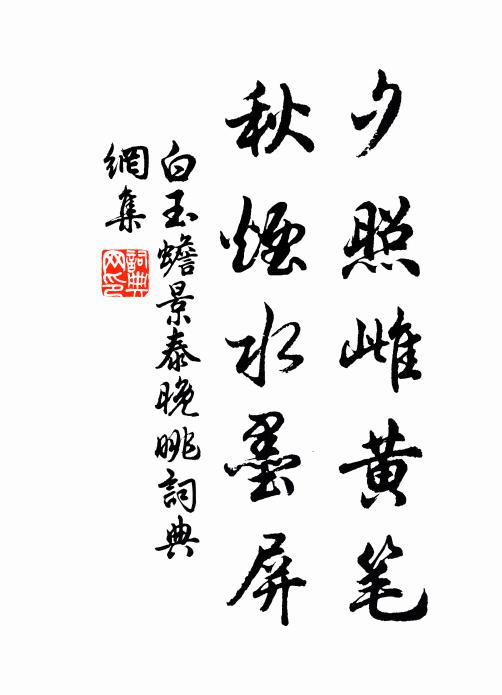 夕照雌黄笔
秋烟水墨屏
白玉蟾景泰晚眺詞典
網集
詞典
网印